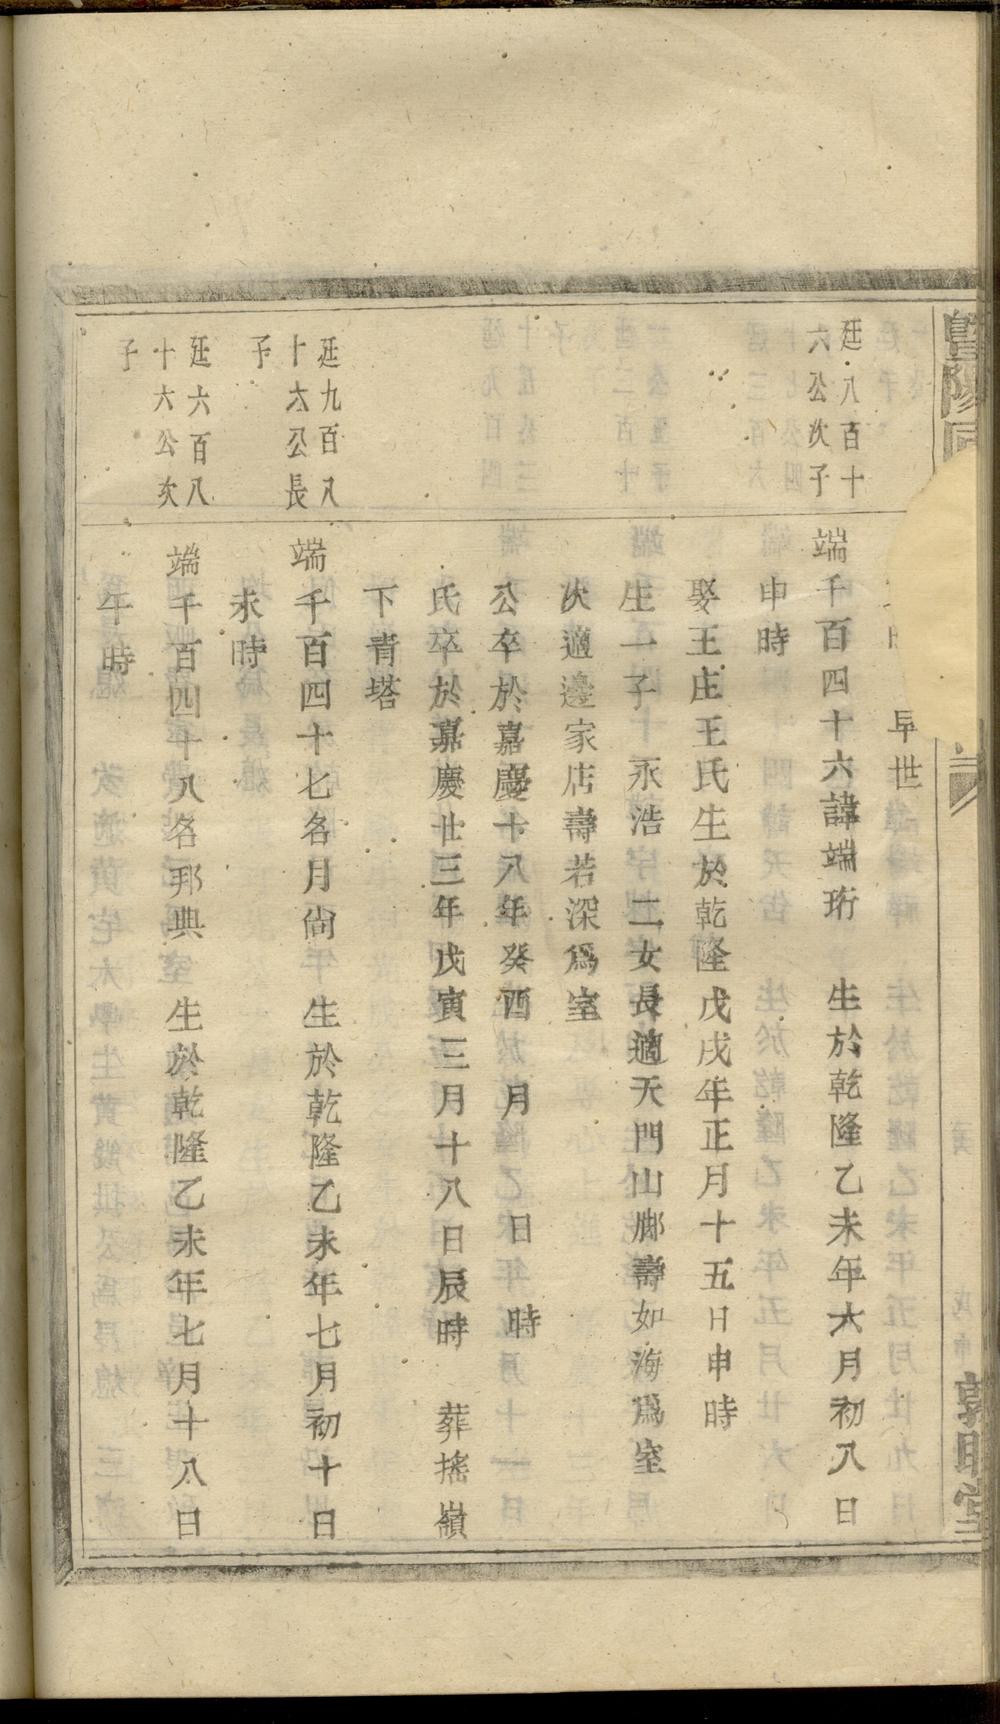 暨陽
敦睦堂
早世
廷八百十
六公次子
端千百四十六諱端珩　生於乾隆乙未年六月初八日
申時
娶王庄王氏生於乾隆戊戌年正月十五日申時
生一子　永浩　二女長適天門山腳壽如海為室
次適邊家店壽若深為室
公卒於嘉慶十八年癸酉　月　日　時
氏卒於嘉慶廿三年戊寅三月十八日辰時　葬搖嶺
下青塔
廷九百八
十六公長
子
端千百四十七名月尚　生於乾隆乙未年七月初十日
未時
廷六百八
十六公次
子
端千百四十八名邦典　生於乾隆乙未年七月十八日
午時